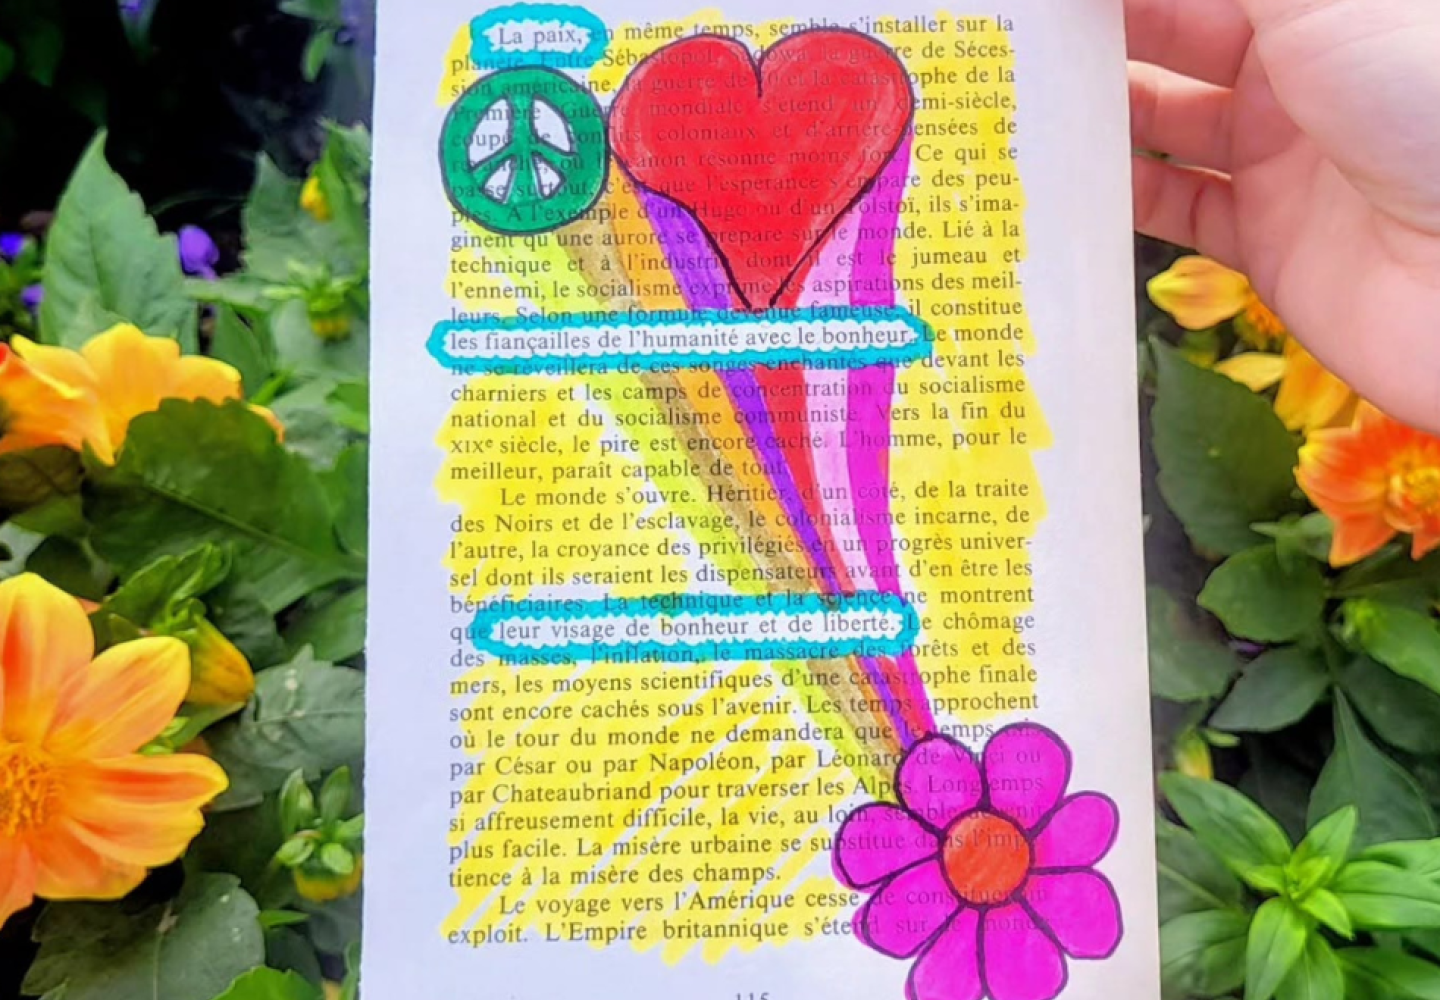 La paix, en même temps, semble s'installer sur la
planète. Entre Sébastopol, Sadowa, la guerre de Séces-
sion américaine, la guerre de 70 et la catastrophe de la
Première Guerre mondiale s'étend un demi-siècle,
coupé de conflits coloniaux et d'arrière-pensées de
revanche, où le canon résonne moins fort. Ce qui se
passe surtout, c'est que l'espérance s'empare des peu-
ples. A l'exemple d'un Hugo ou d'un Tolstoï, ils s'ima-
ginent qu'une aurore se prépare sur le monde. Lié à la
technique et à l'industrie dont il est le jumeau et
l'ennemi, le socialisme exprime les aspirations des meil-
leurs. Selon une formule devenue fameuse, il constitue
les fiançailles de l'humanité avec le bonheur. Le monde
ne se réveillera de ces songes enchantés que devant les
charniers et les camps de concentration du socialisme
national et du socialisme communiste. Vers la fin du
XIXe siècle, le pire est encore caché. L'homme, pour le
meilleur, paraît capable de tout.
Le monde s'ouvre. Héritier, d'un côté, de la traite
des Noirs et de l'esclavage, le colonialisme incarne, de
l'autre, la croyance des privilégiés en un progrès univer-
sel dont ils seraient les dispensateurs avant d'en être les
bénéficiaires. La technique et la science ne montrent
que leur visage de bonheur et de liberté. Le chômage
des masses, l'inflation, le massacre des forêts et des
mers, les moyens scientifiques d'une catastrophe finale
sont encore cachés sous l'avenir. Les temps approchent
où le tour du monde ne demandera que le temps mis
par César ou par Napoléon, par Léonard de Vinci ou
par Chateaubriand pour traverser les Alpes. Longtemps
si affreusement difficile, la vie, au loin, semble devenir
plus facile. La misère urbaine se substitue dans l'impa-
tience à la misère des champs.
Le voyage vers l'Amérique cesse de constituer un
exploit. L'Empire britannique s'étend sur le monde.
115